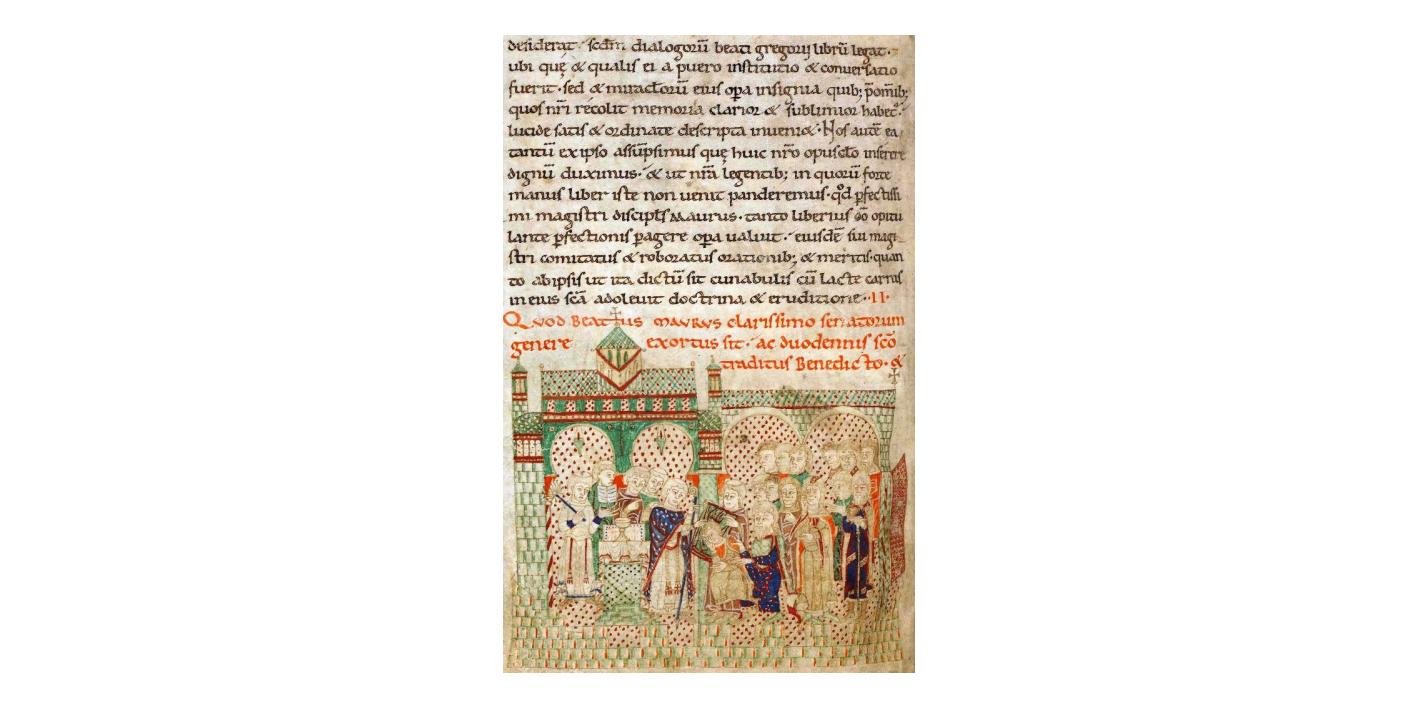 desiderat. scdm dialogorū beati gregorij librū legat.
ubi quę & qualis ei a puero institutio & conuersatio
fuerit. sed & miraclorū eius opa insignia quib;
quos nri recolit memoria clarior & sublimior habet.
lucide satis & ordinate descripta inueni&. Nos autē ea
tantū ex ipso assūpsimus quę huic nro opusclo inserere
dignū duximus. & ut nra legentib; in quorū forte
manus liber iste non uenit panderemus. qd pfectissi
mi magistri discipls Maurus. tanto liberius do opitu
lante pfectionis pagere opa ualuit. eiusdē sui magi
stri comitatus & roboratus orationib; & meritis. quan
to ab ipsis ut ita dictū sit cunabulis cū lacte carnis
in eius scā adoleuit doctrina & eruditione. II.
Quod Beatus MAVRVS clarissimo senatorum
genere exortus sit. ac duodennis sco
traditus Benedicto. &